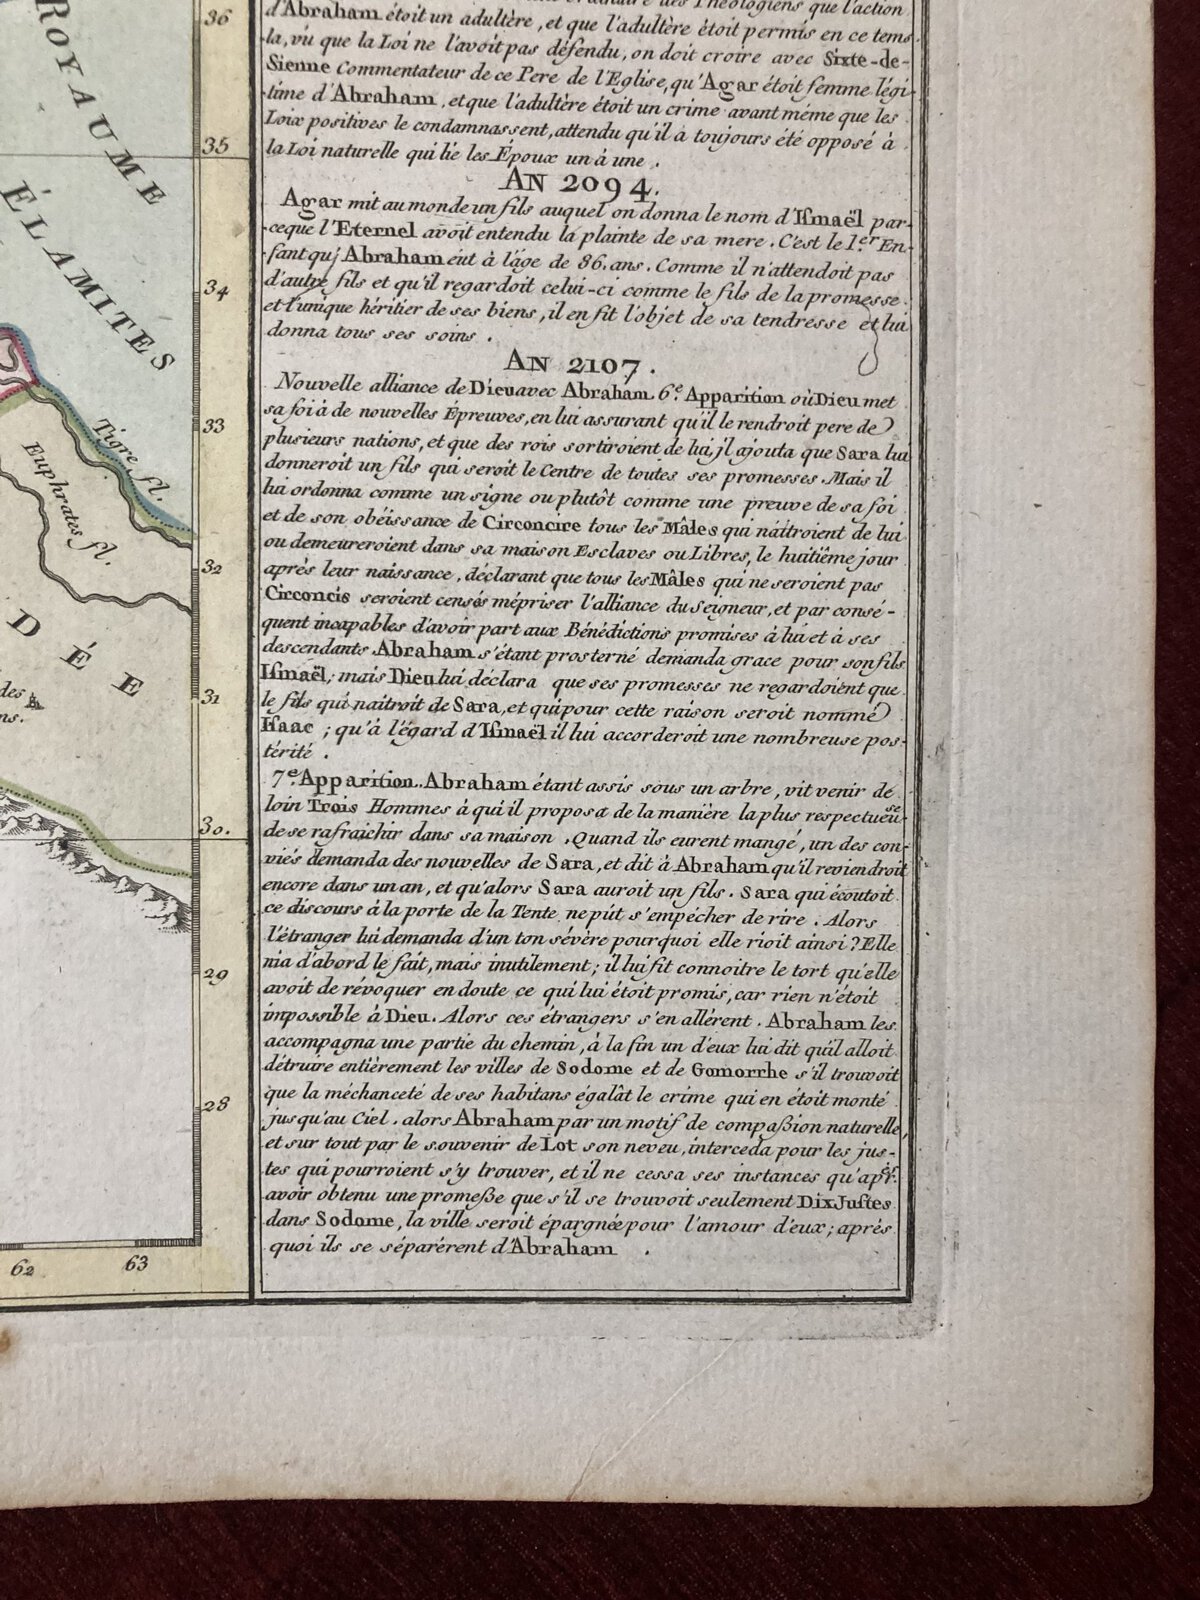 ROYAUME
ÉLAMITES
Tigre fl.
Euphrates fl.
DÉE
des
ns.
36
35
34
33
32
31
30.
29
28
62
63
des Théologiens que l'action
d'Abraham étoit un adultère, et que l'adultère étoit permis en ce tems
la, vu que la Loi ne l'avoit pas défendu, on doit croire avec Sixte-de-
Sienne Commentateur de ce Pere de l'Eglise, qu'Agar étoit femme légi-
time d'Abraham, et que l'adultère étoit un crime avant même que les
Loix positives le condamnassent, attendu qu'il à toujours été opposé à
la Loi naturelle qui lie les Époux un à une.
AN 2094.
Agar mit au monde un fils auquel on donna le nom d'Ismaël par-
ceque l'Eternel avoit entendu la plainte de sa mere. C'est le 1.er En-
fant qu'Abraham eut à l'âge de 86. ans. Comme il n'attendoit pas
d'autre fils et qu'il regardoit celui-ci comme le fils de la promesse
et l'unique héritier de ses biens, il en fit l'objet de sa tendresse et lui
donna tous ses soins.
AN 2107.
Nouvelle alliance de Dieu avec Abraham. 6.e Apparition où Dieu met
sa foi à de nouvelles Épreuves, en lui assurant qu'il le rendroit pere de
plusieurs nations, et que des rois sortiroient de lui, jl ajouta que Sara lui
donneroit un fils qui seroit le Centre de toutes ses promesses. Mais il
lui ordonna comme un signe ou plutôt comme une preuve de sa foi
et de son obéissance de Circoncire tous les Mâles qui naîtroient de lui
ou demeureroient dans sa maison Esclaves ou Libres, le huitiême jour
après leur naissance, déclarant que tous les Mâles qui ne seroient pas
Circoncis seroient censés mépriser l'alliance du Seigneur, et par consé-
quent incapables d'avoir part aux Bénédictions promises à lui et à ses
descendants. Abraham s'étant prosterné demanda grace pour son fils
Ismaël; mais Dieu lui déclara que ses promesses ne regardoient que
le fils qui naitroit de Sara, et qui pour cette raison seroit nommé
Isaac; qu'à l'égard d'Ismaël il lui accorderoit une nombreuse pos-
térité.
7.e Apparition. Abraham étant assis sous un arbre, vit venir de
loin Trois Hommes à qui il proposa de la manière la plus respectueuse
de se rafraichir dans sa maison. Quand ils eurent mangé, un des con-
viés demanda des nouvelles de Sara, et dit à Abraham qu'il reviendroit
encore dans un an, et qu'alors Sara auroit un fils. Sara qui écoutoit
ce discours à la porte de la Tente ne pût s'empécher de rire. Alors
l'étranger lui demanda d'un ton sévère pourquoi elle rioit ainsi? Elle
nia d'abord le fait, mais inutilement; il lui fit connoitre le tort qu'elle
avoit de révoquer en doute ce qui lui étoit promis, car rien n'étoit
impossible à Dieu. Alors ces étrangers s'en allérent. Abraham les
accompagna une partie du chemin, à la fin un d'eux lui dit qu'il alloit
détruire entièrement les villes de Sodome et de Gomorrhe s'il trouvoit
que la méchanceté de ses habitans égalât le crime qui en étoit monté
jusqu'au Ciel. alors Abraham par un motif de compaßion naturelle,
et sur tout par le souvenir de Lot son neveu, interceda pour les jus-
tes qui pourroient s'y trouver, et il ne cessa ses instances qu'apr.ès
avoir obtenu une promeße que s'il se trouvoit seulement Dix Justes
dans Sodome, la ville seroit épargnée pour l'amour d'eux; après
quoi ils se séparérent d'Abraham.